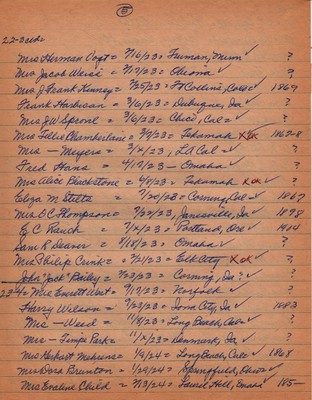 B
22-3 cds
Mrs Herman Vogt = 7/16/23 = Truman, Minn ✓ ?
Mrs Jacob Weise = 7/17/23 = ✓ ?
Mrs J Frank Kinney = 7/25/23 = Ft Collins, Colo = ✓ 1869
Frank Harbican = 8/6/23 = Dubuque, Ia ✓ ?
Mrs J W Sprone = 8/6/23 = Chico, Cal = ✓ ?
Mrs Tillie Chamberlain = 8/9/23 = Tekamah X ✓ 1862-8
Mrs — Meyers = 7/x/23, La Cal = ✓ ?
Fred Hans = 4/17/23 — Omaha ✓ ?
Mrs Alice Blackstone = 4/8/23 = Tekamah X ✓ ?
Eliza M Stiltz = 7/20/28 = Corning Cal = ✓ 1867
Mrs O C Thompson = 7/24/23, Janesville, Ia ✓ 1898
E C Rauch = 7/x/23 = Portland, Ore ✓ 1904
Sam R Deaver = 7/18/23 = Omaha ✓ ?
Mrs Philip Crink = 9/21/23 = Elk City X ✓ ?
John "Jack" Bailey = 9/23/23 = Corning, Ia ? ✓ ?
23-4 = Mrs Everett West = 9/17/23 = Norfolk ✓ ?
Harry Wilson = 9/23/23 = Iowa City, Ia ✓ 1883
Mrs — Weed = 11/8/23 = Long Beach, Cal = ✓ ?
Mrs — Timps Park = 11/x/23 = Denmark, Ia ✓ ?
Mrs Herbert = 1/9/24 = Long Beach, Cal = ✓ 1868
Mrs Dora Brunton = 1/29/24 = Springfield, ✓ ?
Mrs Evaline Child = 7/3/24 = Laurel Hill, Omaha ✓ 185-